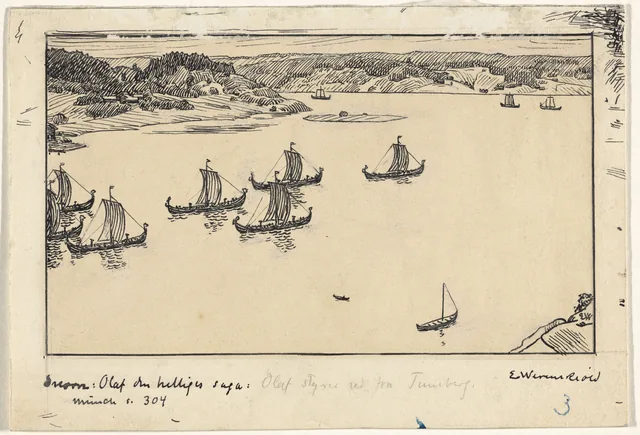 Snorre: Olaf den helliges saga: Olaf styrer ned fra Tunsberg.
E Werenskiold
Munch s. 304
3
EW